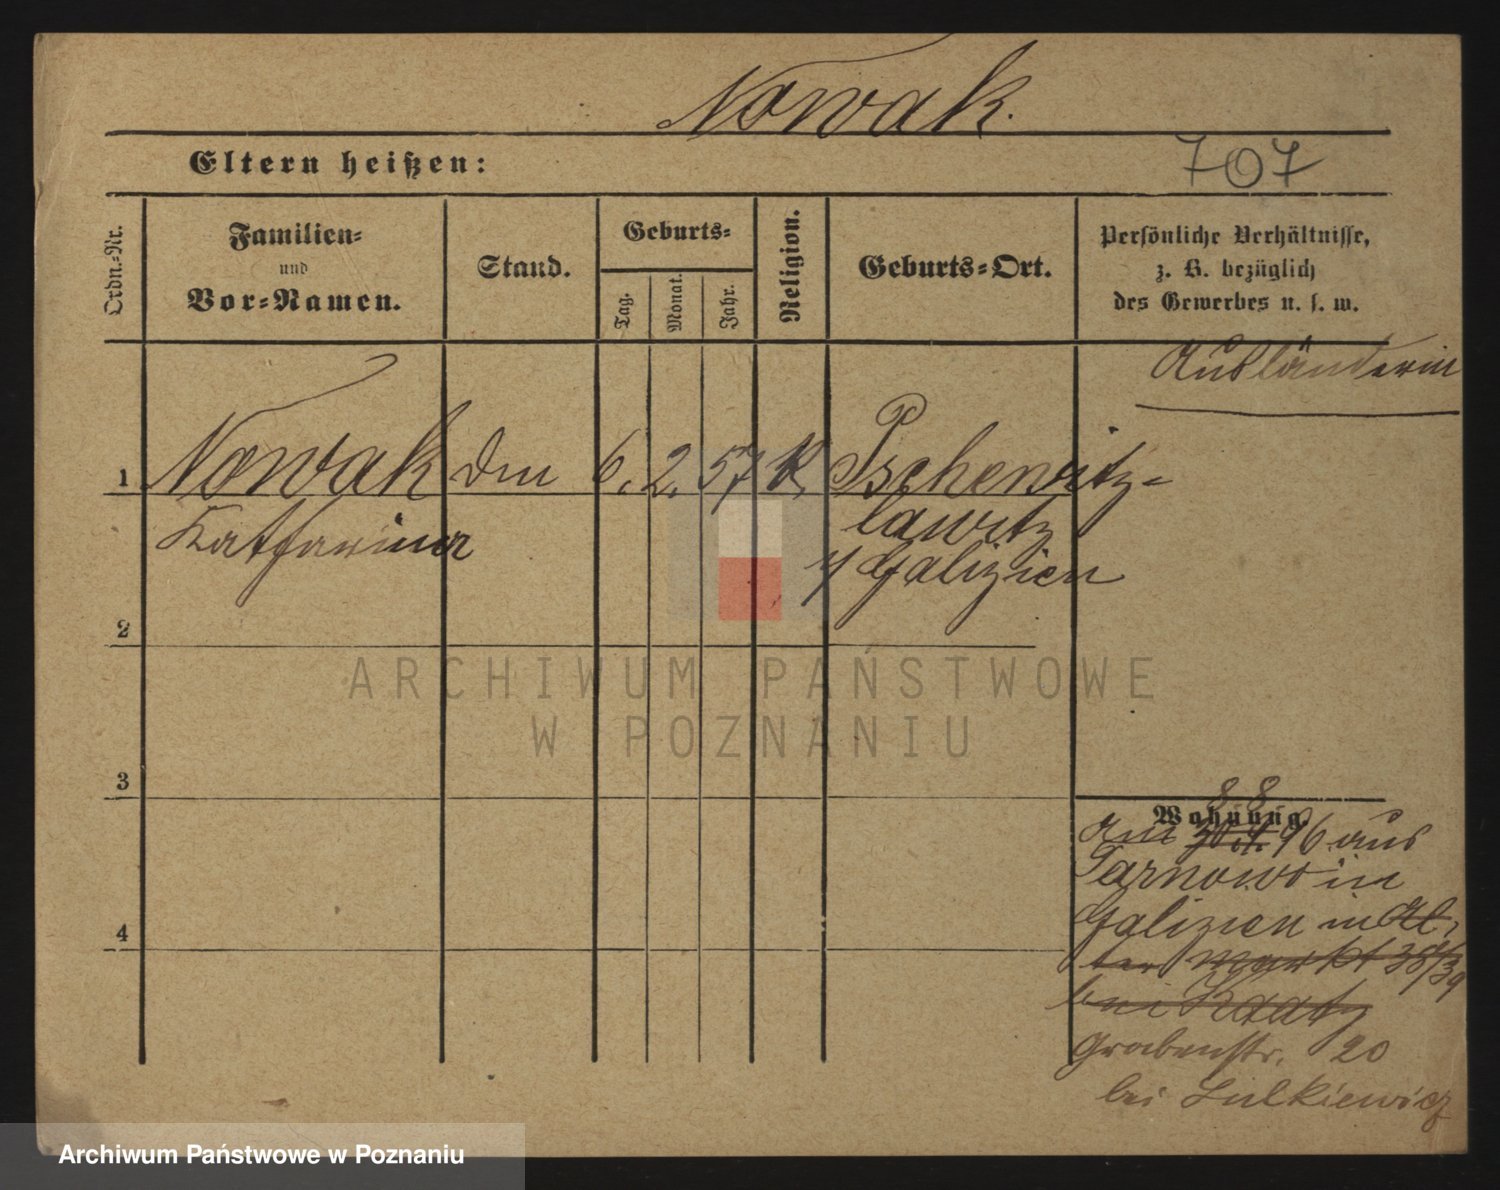 Nowak.
Eltern heißen:
707
Ordn.-Nr.
Familien-
und
Vor-Namen.
Stand.
Geburts-
Tag.
Monat.
Jahr.
Religion.
Geburts-Ort.
Persönliche Verhältnisse,
z. B. bezüglich
des Gewerbes u. s. w.
Ausländerin
1 Nowak 6. 2. 57 K. Pschewitz-
Katharina
lawitz
Galizien
2
3
4
Wohnung.
8 8
Am 96 aus
Tarnow in
Galizien in Al-
ter Markt 38/39
bei Kaatz
Grabenstr. 20
bei Lulkiewicz
ARCHIWUM PAŃSTWOWE
W POZNANIU
Archiwum Państwowe w Poznaniu